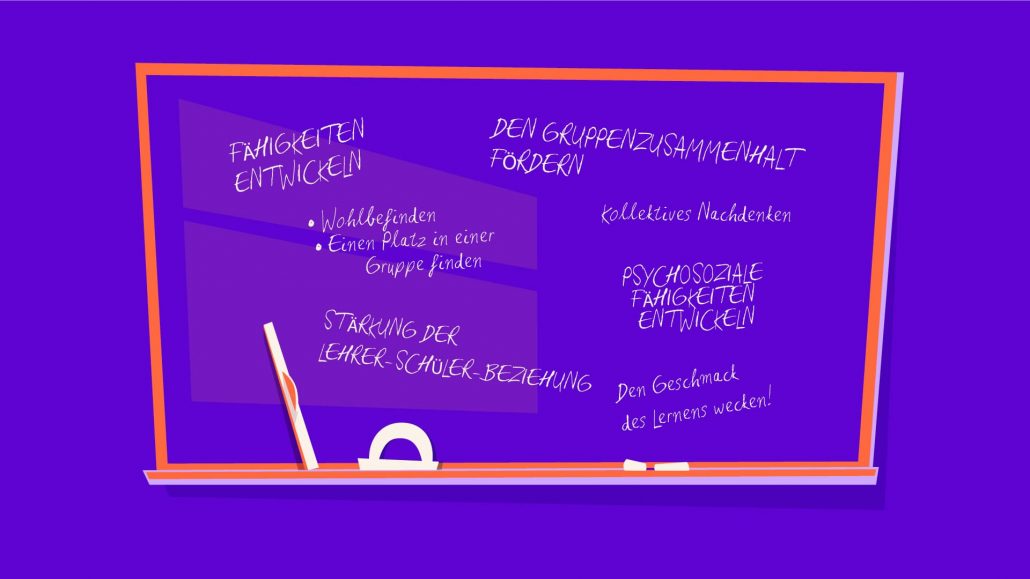 FÄHIGKEITEN
ENTWICKELN
• Wohlbefinden
• Einen Platz in einer
Gruppe finden
STÄRKUNG DER
LEHRER-SCHÜLER-BEZIEHUNG
DEN GRUPPENZUSAMMENHALT
FÖRDERN
Kollektives Nachdenken
PSYCHOSOZIALE
FÄHIGKEITEN
ENTWICKELN
Den Geschmack
des Lernens wecken!